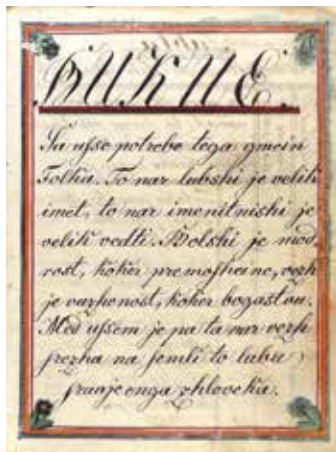 BUKUE.
Sa usse potrebe tega gmein
Folka. To nar lubshi je velik
imet, to nar imenitnishi je
velik vedti. Bolshi je mod
rost, koker premoshene, vezh
je vurzhenost, koker bogastvu.
Med ussem je pa ta nar vezh
srezha na semli to lubu
sraoje enga zhloveka.